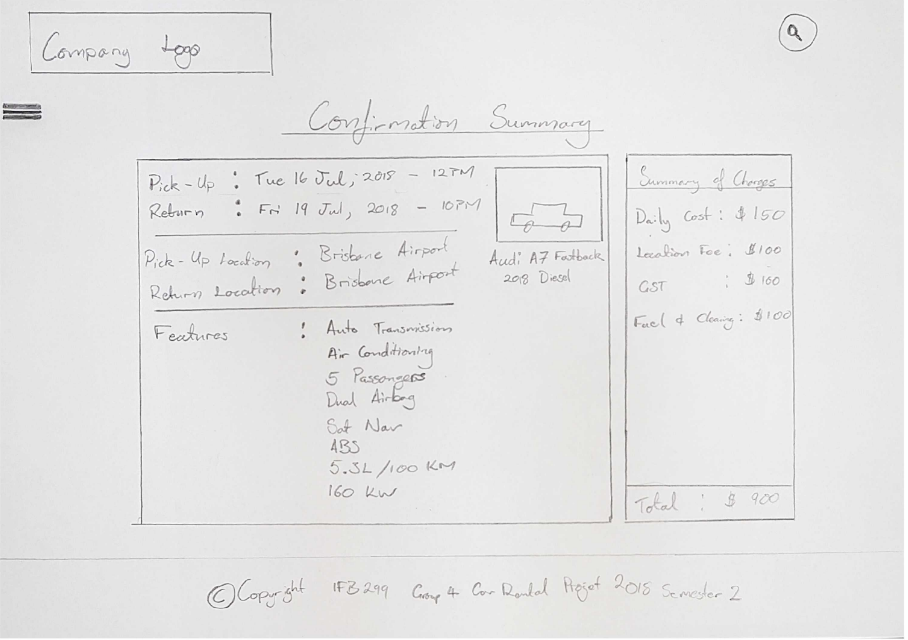 Company Logo
Confirmation Summary
Pick-Up : Tue 16 Jul, 2018 - 12PM
Return : Fri 19 Jul, 2018 - 10PM
Pick-Up Location : Brisbane Airport
Return Location : Brisbane Airport
Features : Auto Transmission
Air Conditioning
5 Passengers
Dual Airbag
Sat Nav
ABS
5.3L/100 KM
160 KW
Audi A7 Fastback
2018 Diesel
Summary of Charges
Daily Cost : $150
Location Fee : $100
GST : $100
Fuel & Cleaning : $100
Total : $ 900
© Copyright IFB299 Group 4 Car Rental Project 2018 Semester 2